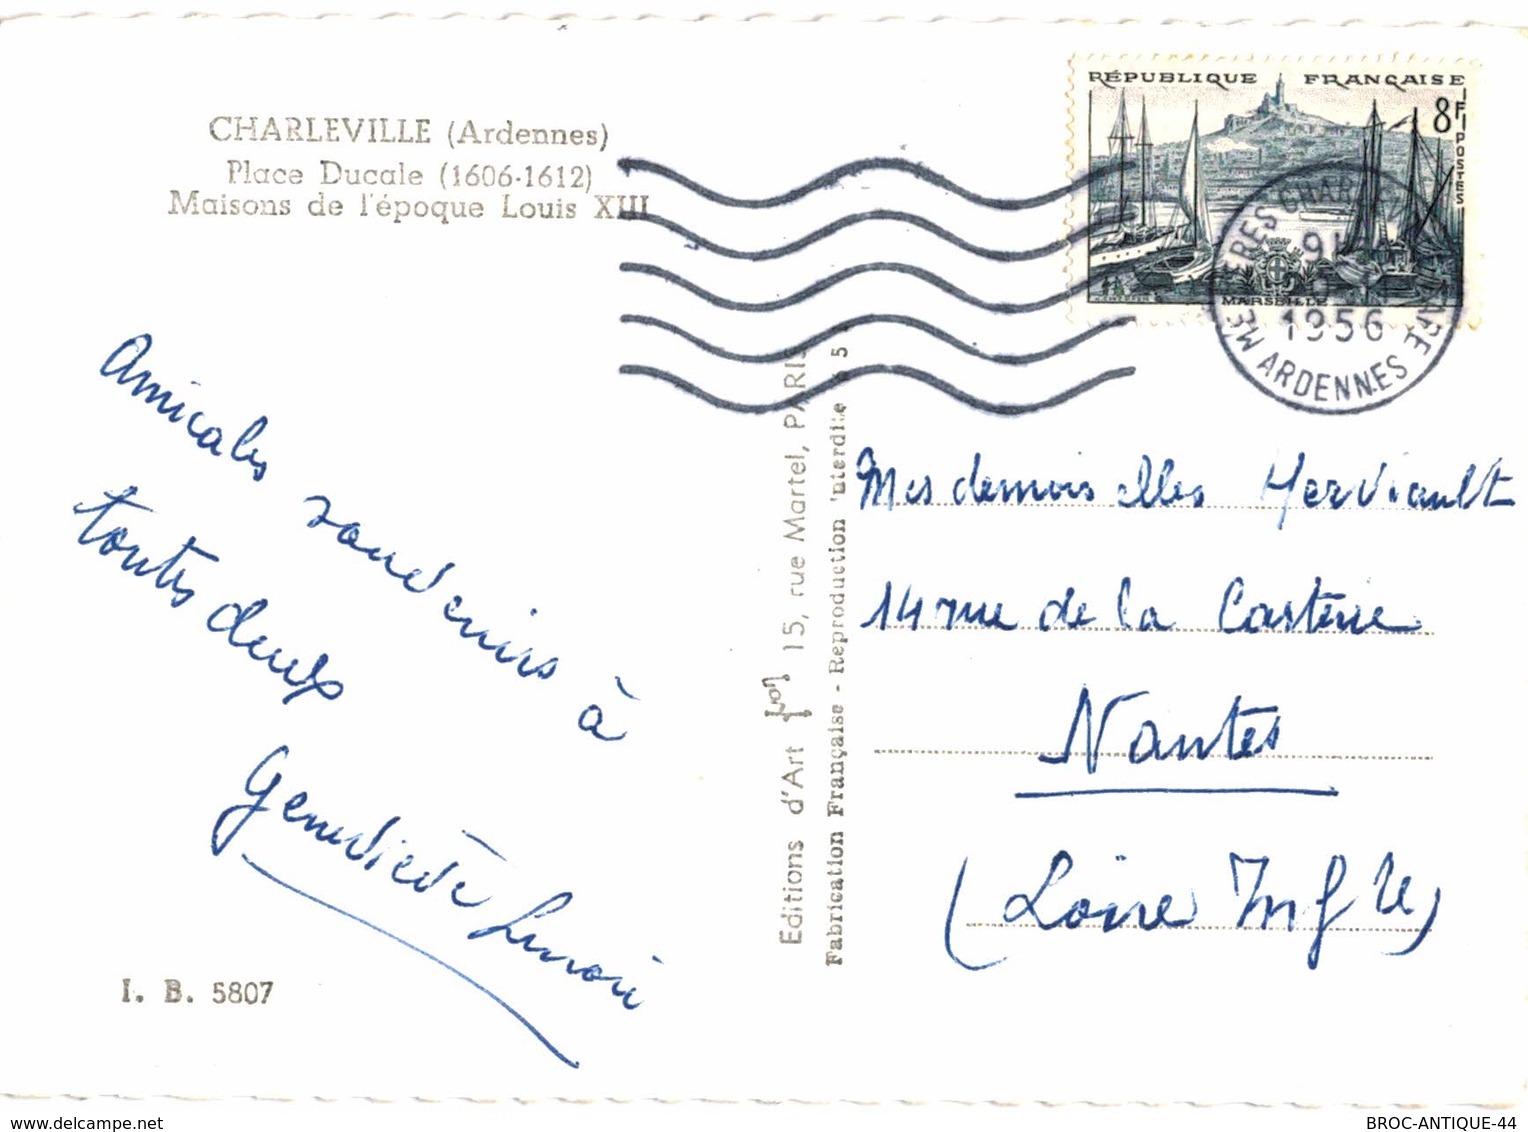 CHARLEVILLE (Ardennes)
Place Ducale (1606-1612)
Maisons de l'époque Louis XIII
RÉPUBLIQUE FRANÇAISE
8F
POSTES
MARSEILLE
1956
ARDENNES
Amicales souvenirs à
toutes deux
Geneviève
I. B. 5807
Editions d'Art Yvon 15, rue Martel, PARIS
Fabrication Française - Reproduction interdite
Mesdemoiselles Herviault
14 rue de la Casterie
Nantes
(Loire Infre)
BROC-ANTIQUE-44